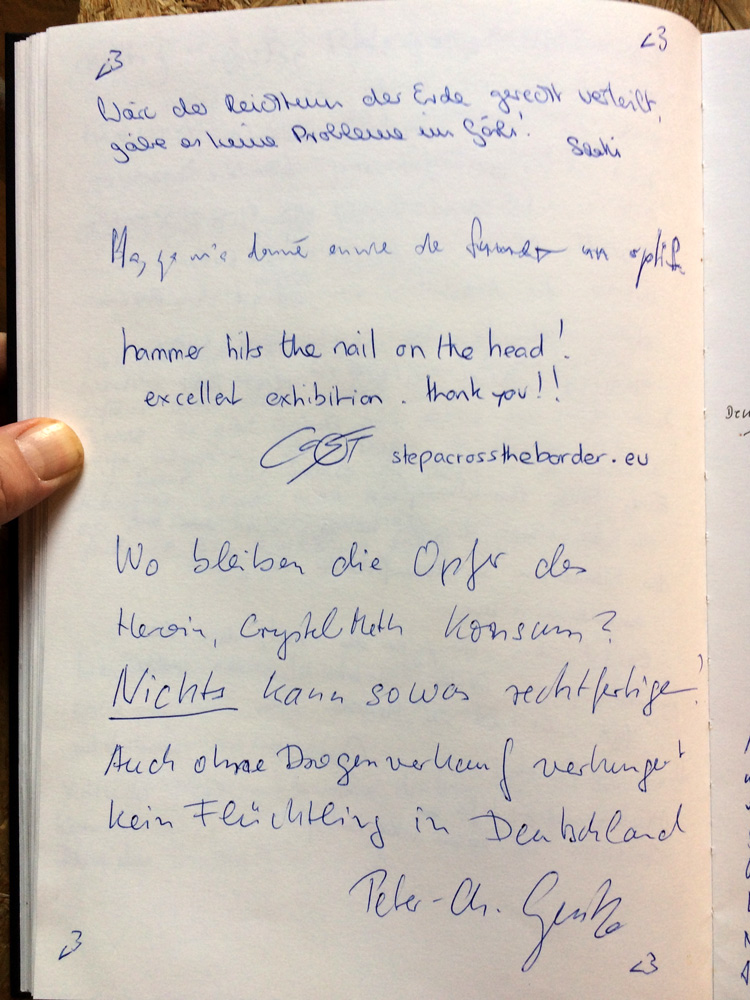 <3
<3
Wäre der Reichtum der Erde gerecht verteilt,
gäbe es keine Probleme im Görli!
ça m'a donné envie de un
hammer hits the nail on the head!
excellent exhibition. thank you!!
stepacrosstheborder.eu
Wo bleiben die Opfer des
Heroin, Crystel Meth Konsum?
Nichts kann sowas rechtfertigen!
Auch ohne Drogenverkauf verhungert
kein Flüchtling in Deutschland
Peter-Ch.
<3
<3